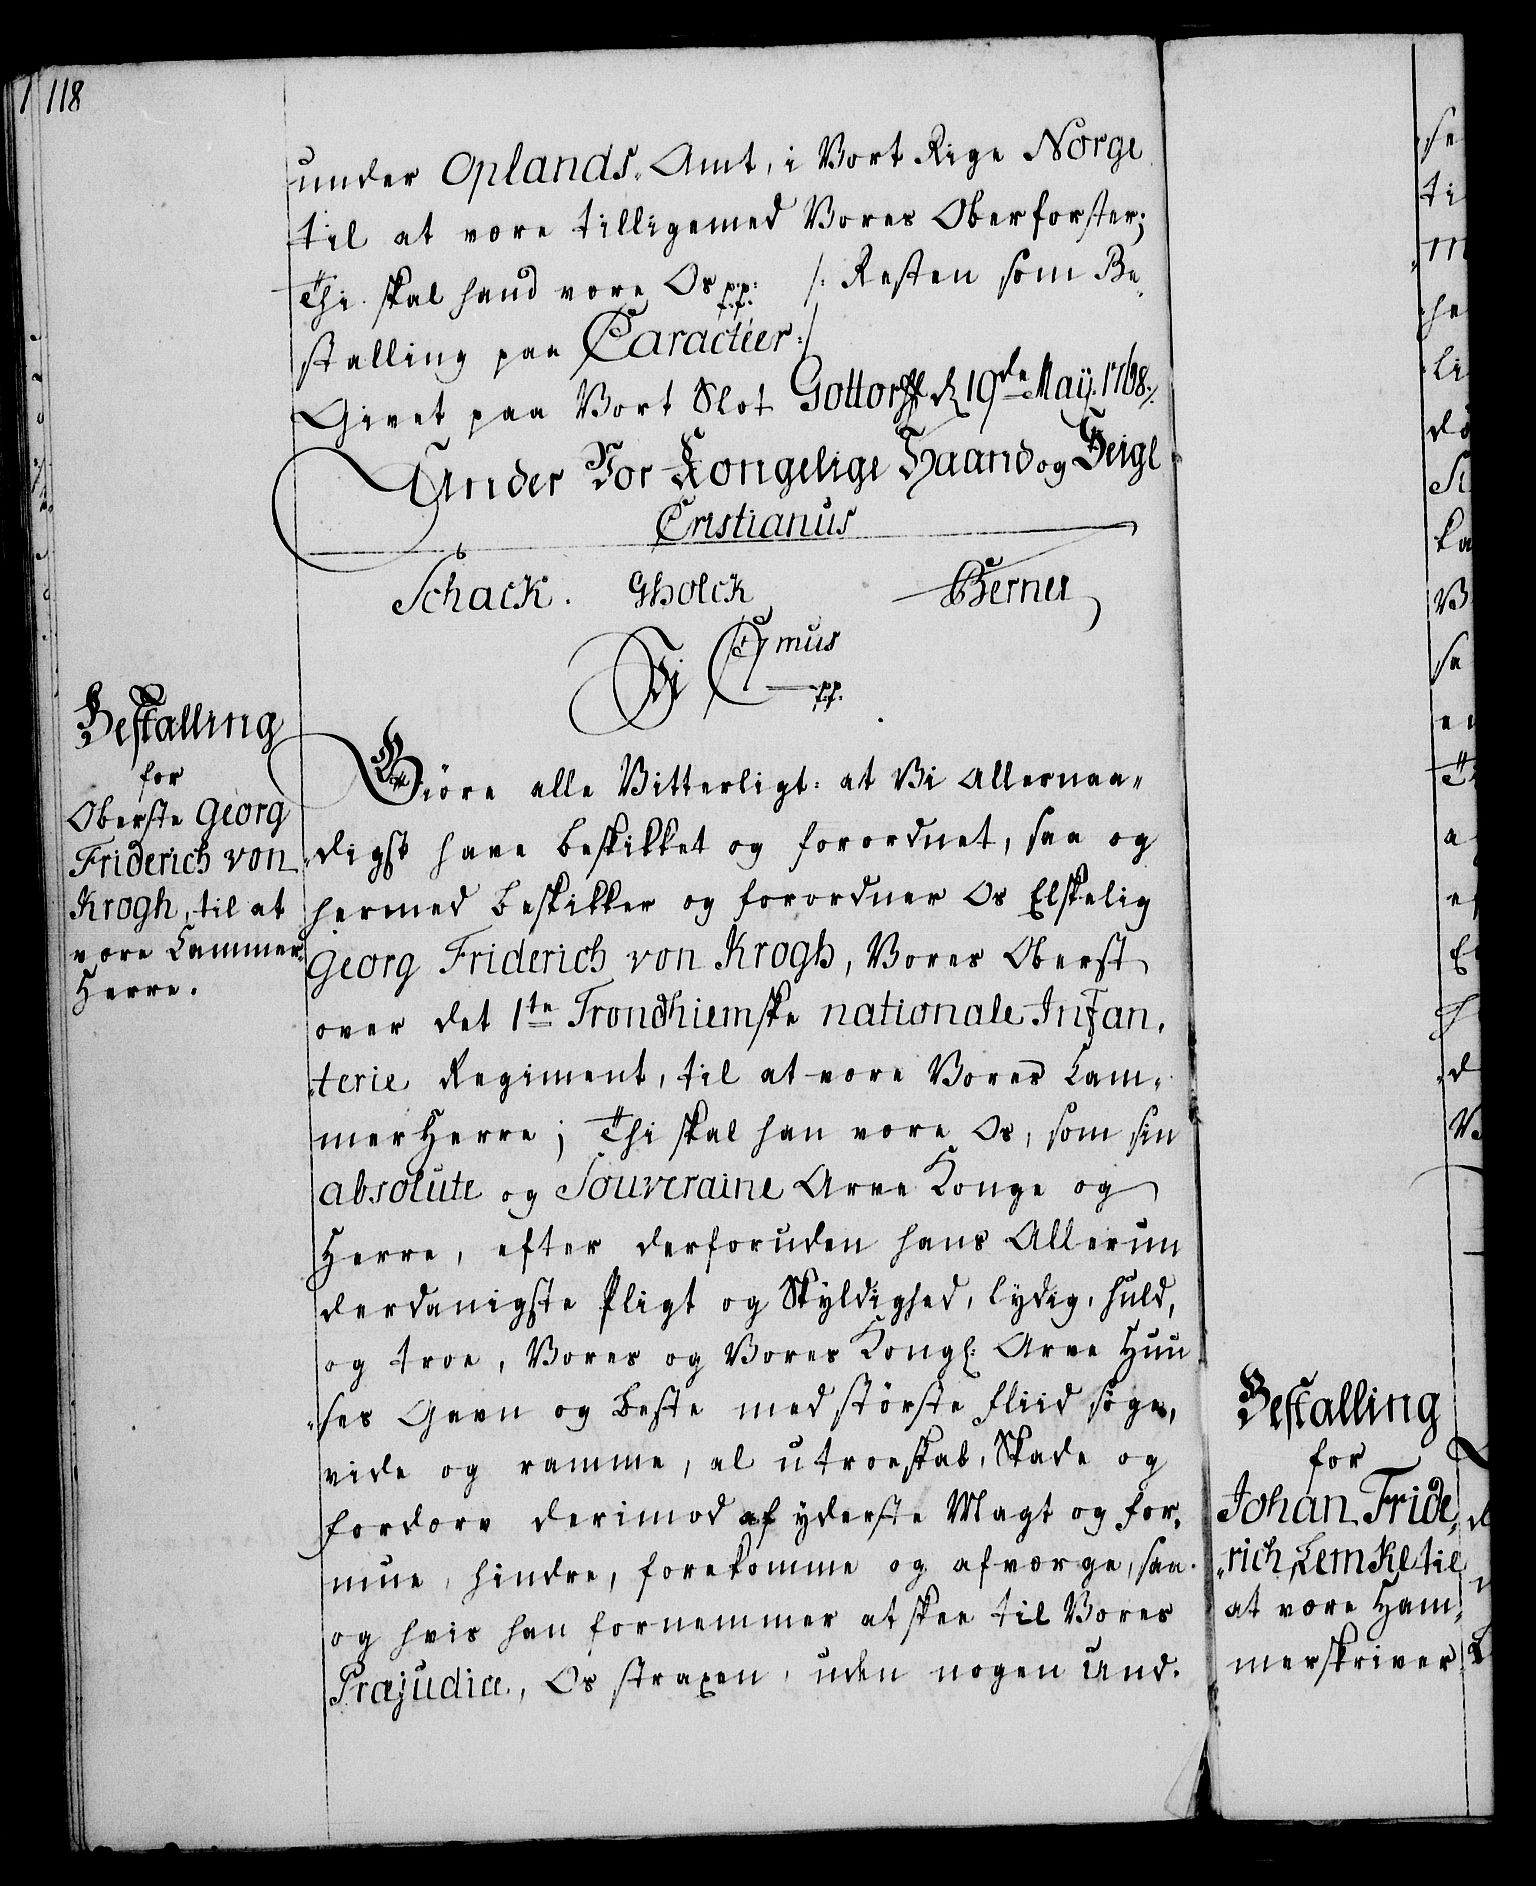 118
under Oplands Amt, i Vort Rige Norge
til at være tilligemed Vores Oberforster;
Thi skal hand være Os p:p: /: Resten som Be„
stalling paa Caracteer :/
Givet paa Vort Slot Gottorff d 19de Maÿ. 1768 ./.
Under Vor Kongelige Haand og Seigl
Cristianus
Schack. Gholck Berner
Vi C 7mus
p.p.
Bestalling
for
Oberste Georg
Friderich von
Krogh, til at
være Cammer„
Herre.
Giöre alle Vitterligt: at Vi Allernaa„
„digst have beskikket og forordnet, saa og
hermed beskikker og forordner Os Elskelig
Georg Friderich von Krogh, Vores Oberst
over det 1te Trondhiemske nationale Infan„
„terie Regiment, til at være Vores Cam„
mer Herre; Thi skal han være Os, som sin
absolute og Souveraine Arve Konge og
Herre, efter derforuden hans Allerun
derdanigste Pligt og Skyldighed, lydig, huld,
og troe, Vores og Vores Kongl: Arve Huu
„ses Gavn og beste med störste fliid söge,
vide og ramme, al utroeskab, Skade og
fordærv derimod af yderste Magt og for„
mue, hindre, forekomme og afværge, saa
og hvis han fornemmer at skee til Vores
Præjudice, Os straxen, uden nogen und„
Bestalling
for
Johan Fride„
„rich Lemke til
at være Ham„
merskriver